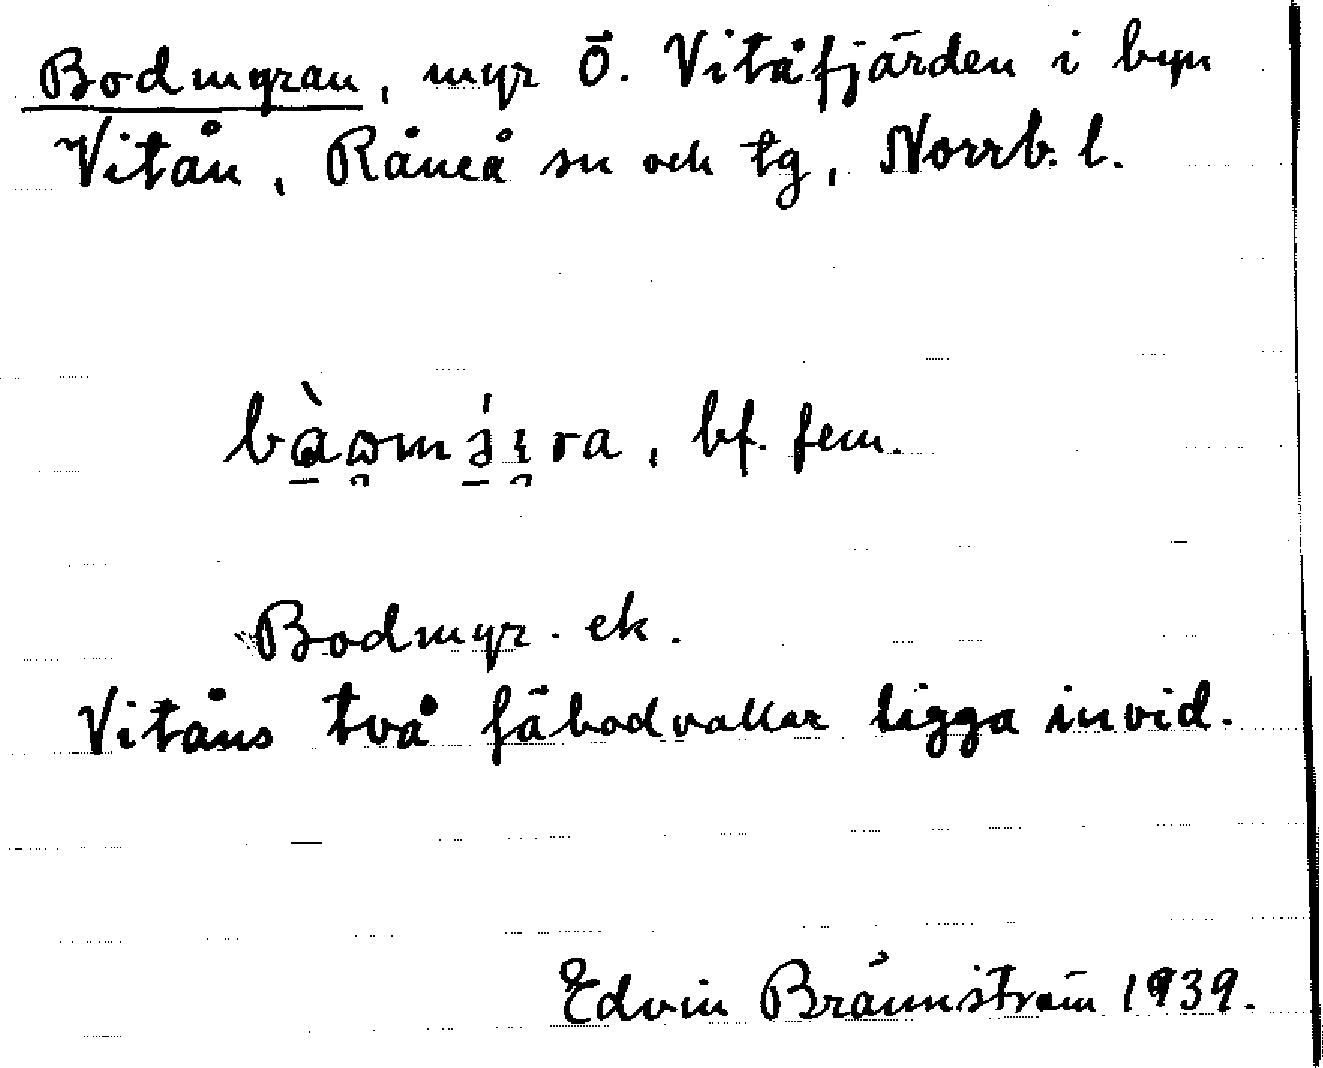 Bodmyran, myr Ö. Vitåfjärden i byn
Vitån, Råneå sn och tg, Norrb. l.
bf. fem.
Bodmyr. ek.
Vitåns två fäbodvallar ligga invid.
Edvin Brännström 1939.